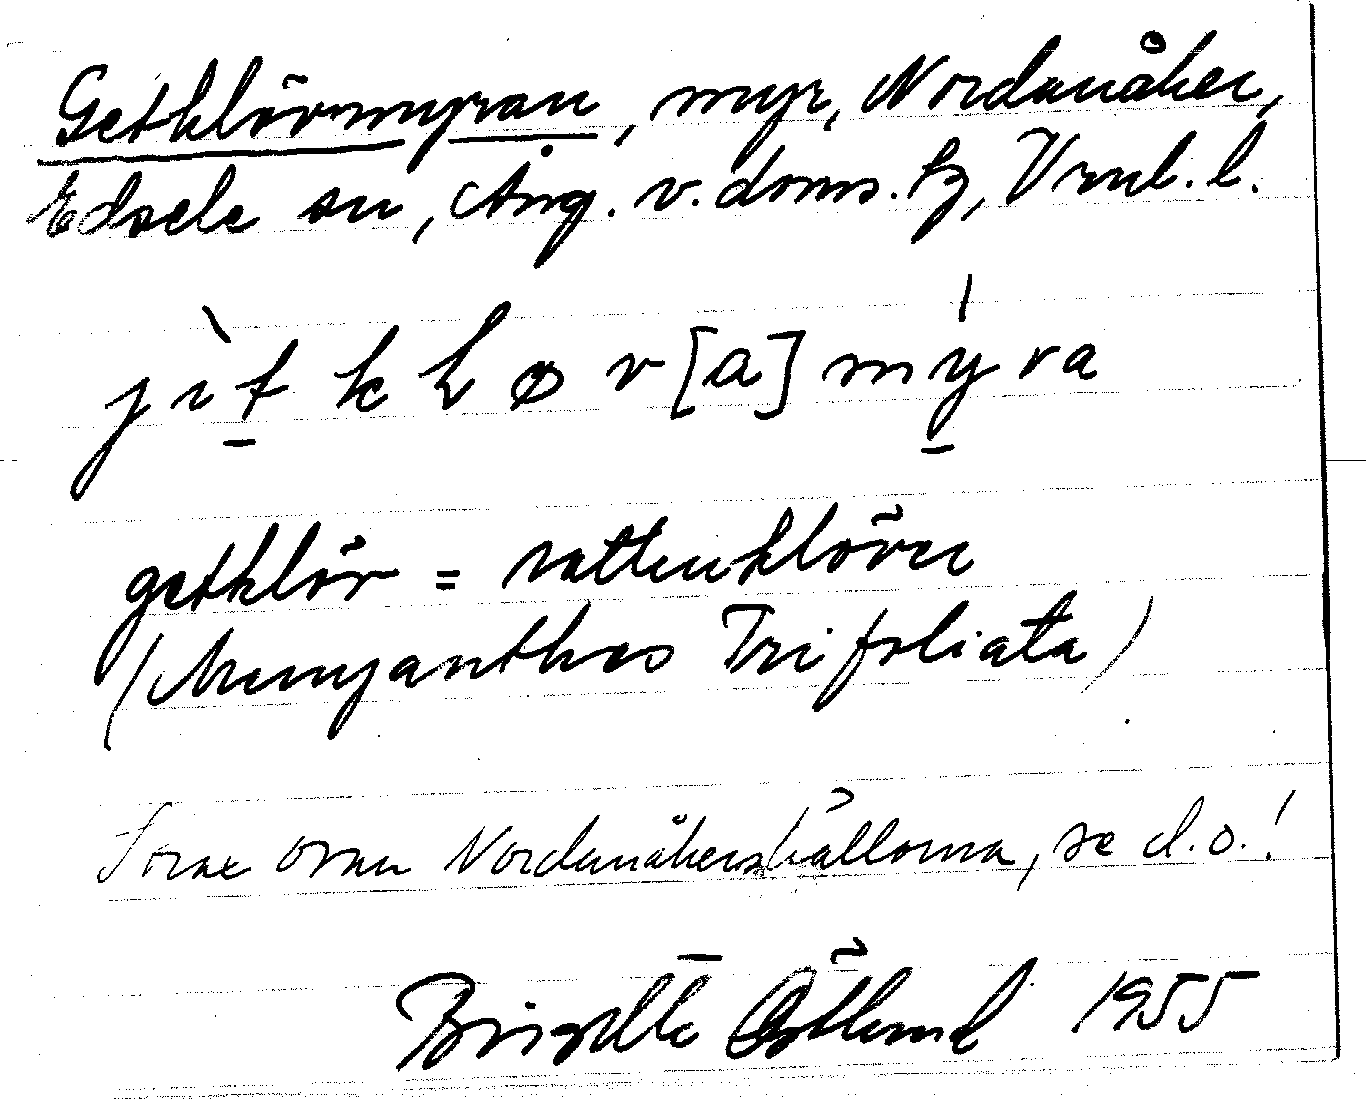 Getklövmyran, myr, Nordanåker,
Edsele sn, Ång. v. doms. tg, Vrml. l.
jìt kløv[a]mýra
getklöv = vattenklöver
(Menyanthes Trifoliata)
ovan Nordanåkershällorna, se d.o.!
Birgitta Östlund 1955